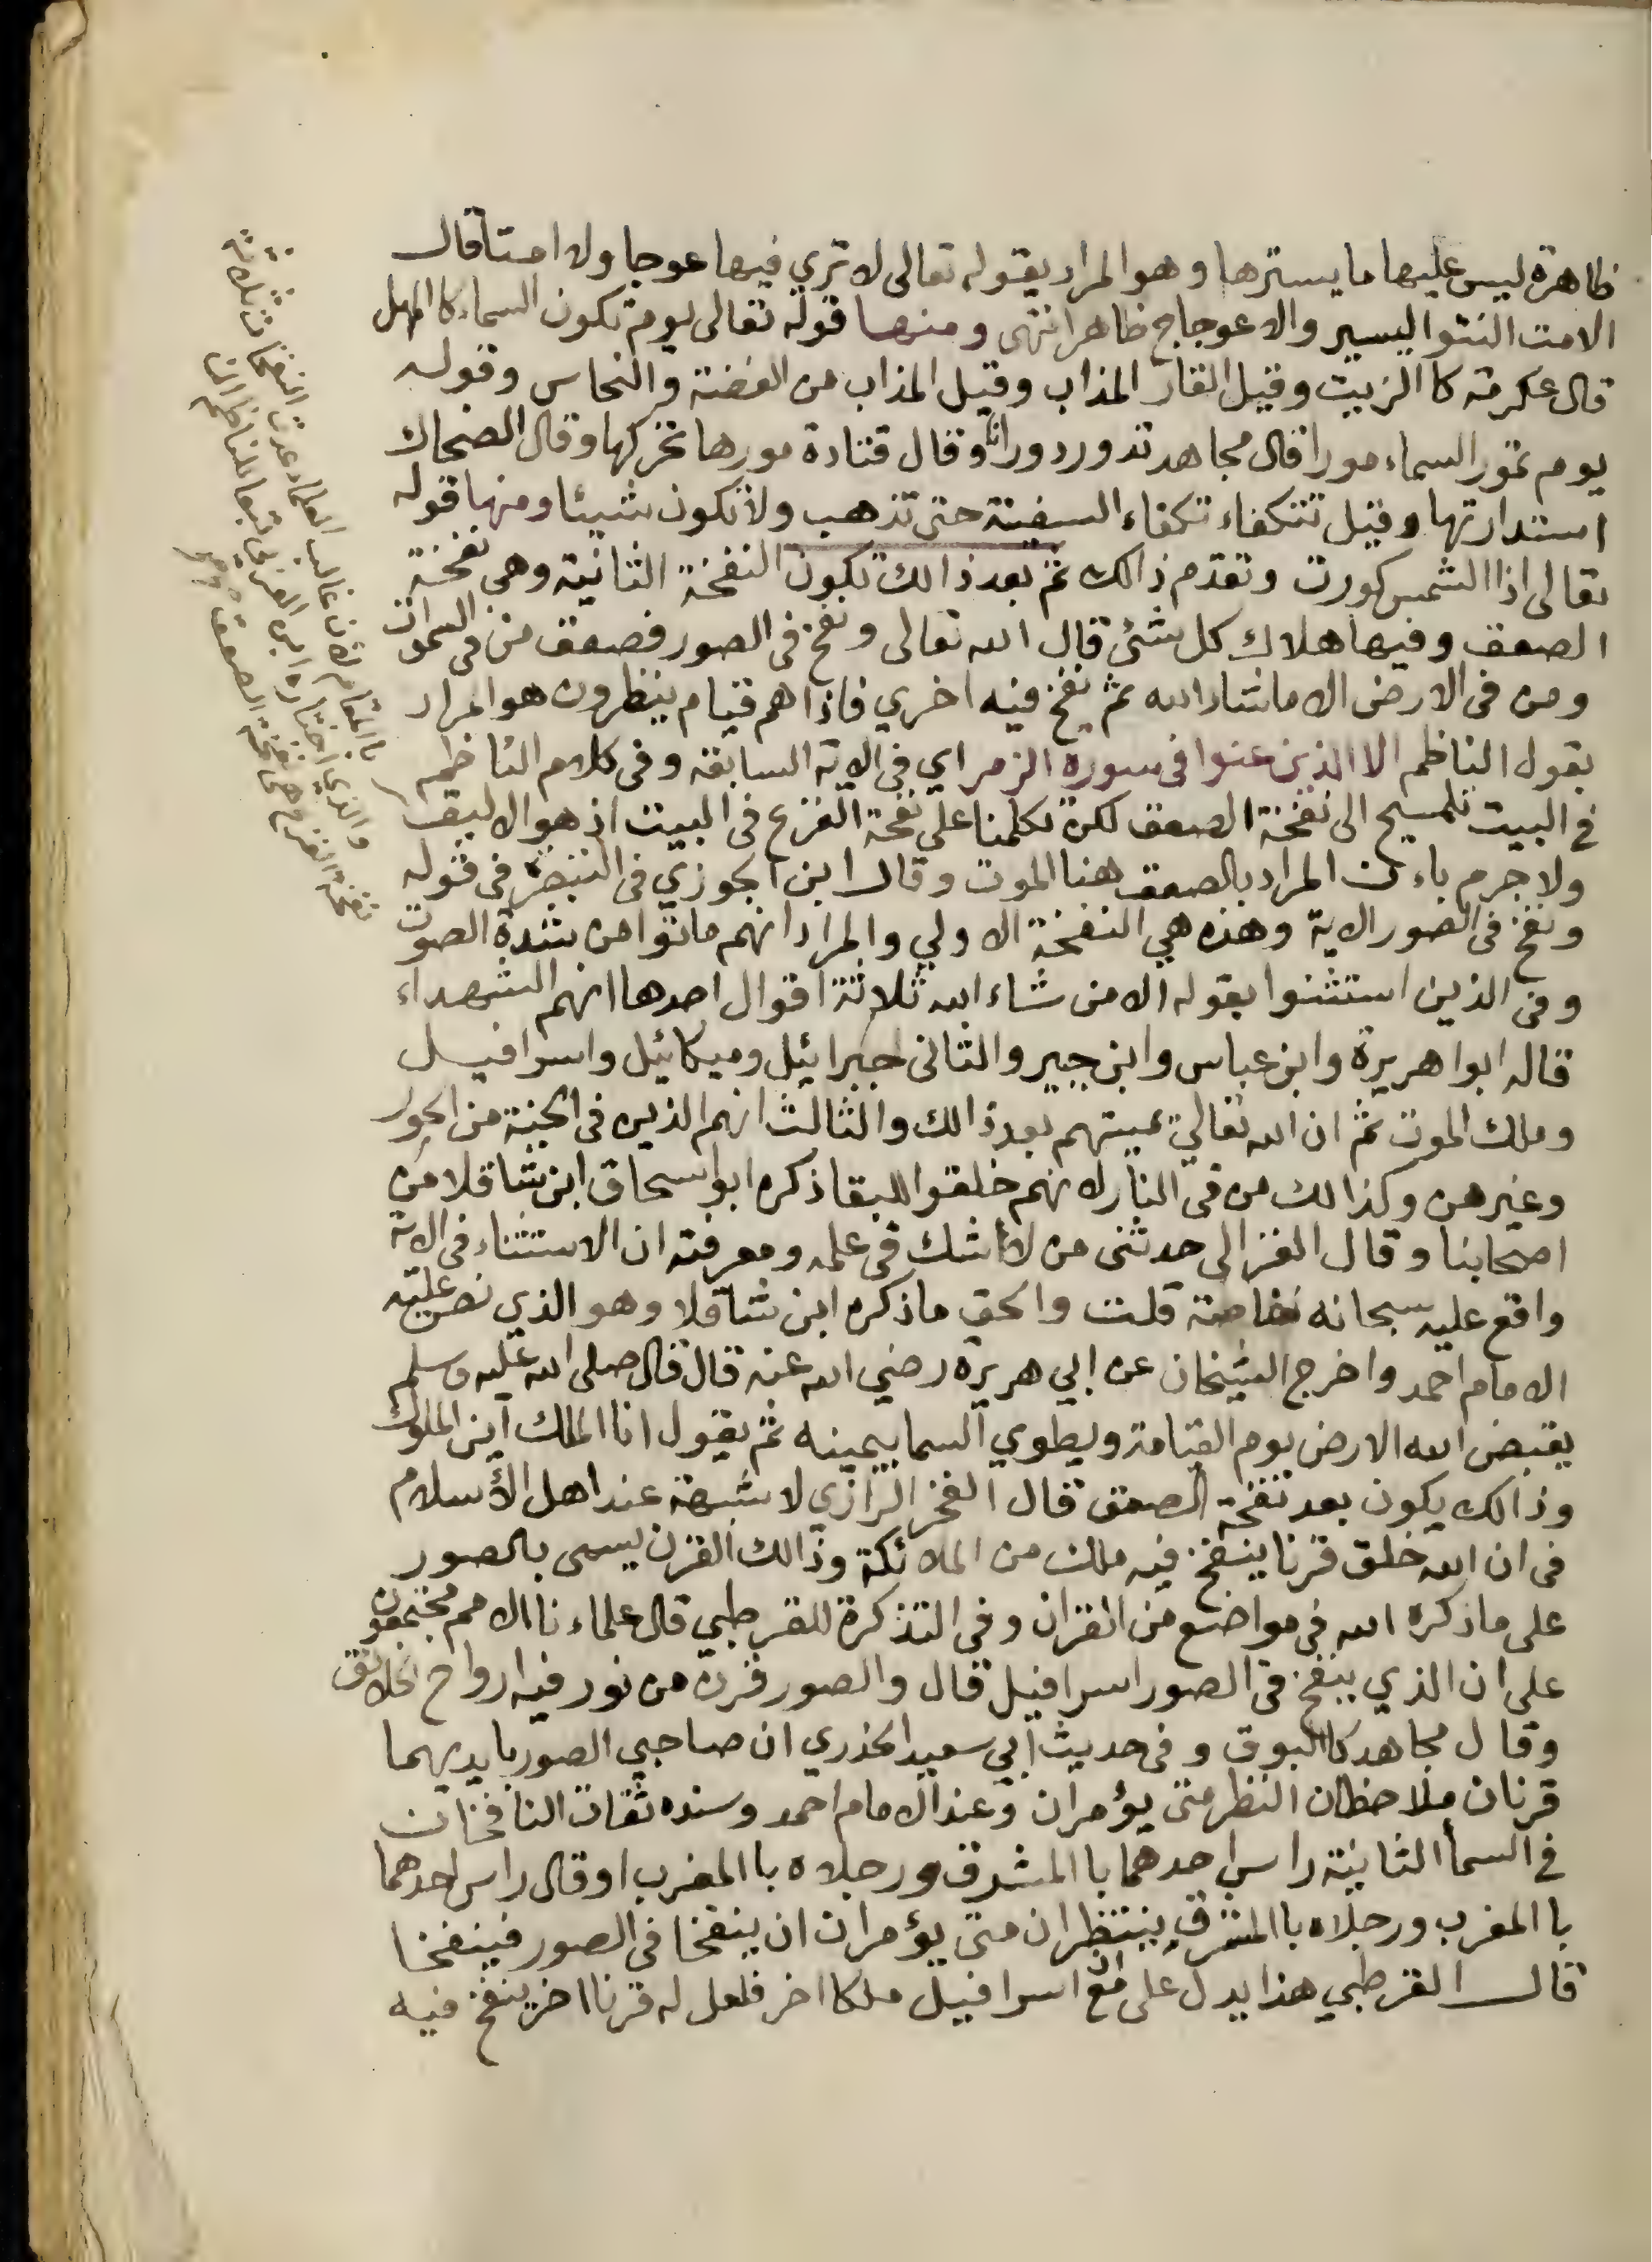 ظاهرة ليس عليها ما يسترها وهو المراد بقوله تعالى لا تري فيها عوجا ولا امتا قال
الامت النتو اليسير والاعوجاج ظاهر انتهى ومنها قوله تعالى يوم تكون السماء كا المهل
قال عكرمة كا الزيت وقيل القار المذاب وقيل المذاب من الفضة والنحاس وقوله
يوم تمور السماء مورا قال مجاهد تدور دورانا وقال قتادة مورها تحركها وقال الضحاك
استدارتها وقيل تتكفاء تكفاء السفينة حتى تذهب ولا تكون شيئا ومنها قوله
تعالى اذا الشمس كورت وتقدم ذالك ثم بعد ذالك تكون النفخة الثانية وهي نفخة
الصعق وفيها هلاك كل شئ قال الله تعالى ونفخ في الصور فصعق من في السموات
ومن في الارض الا ماشاء الله ثم نفخ فيه اخري فاذا هم قيام ينظرون هو المراد
بقول الناظم الا الذين عنوا في سورة الزمر اي في الاية السابقة وفي كلام الناظم
في البيت تلميح الى نفخة الصعق لكن تكلمنا على نفخة الفزع في البيت اذ هو الاليق
ولا جرم باءن المراد بالصعق هنا الموت وقال ابن الجوزي في التبصرة في قوله
ونفخ في الصور الاية وهذه هي النفخة الاولي والمراد انهم ماتوا من شدة الصوت
وفي الذين استثنوا بقوله الا من شاء الله ثلاثة اقوال احدها انهم الشهداء
قاله ابوا هريرة وابن عباس وابن جبير والثاني جبرائيل وميكائيل واسرافيل
وملك الموت ثم ان الله تعالى يميتهم بعد ذالك والثالث انهم الذين في الجنة من الحور
وغيرهن وكذالك من في النار لانهم خلقوا للبقا ذكره ابو اسحاق ابن شاقلا من
اصحابنا وقال الغزالي حدثني من لا اشك في علمه ومعرفته ان الاستثناء في الاية
واقع عليه سبحانه خاصة قلت والحق ماذكره ابن شاقلا وهو الذي نص عليه
الامام احمد واخرج الشيخان عن ابي هريرة رضي الله عنه قال قال صلى الله عليه وسلم
يقبض الله الارض يوم القيامة ويطوي السما بيمينه ثم يقول انا الملك اين الملوك
وذالك يكون بعد نفخة الصعق قال الفخر الرازي لا شبهة عند اهل الأسلام
في ان الله خلق قرنا ينفخ فيه ملك من الملائكة وذالك القرن يسمى بالصور
على ماذكره الله في مواضع من القران وفي التذكرة للقرطبي قال علماءنا الامم مجتمعون
على ان الذي ينفخ في الصور اسرافيل قال والصور قرن من نور فيه ارواح الخلائق
وقال مجاهد كالبوق وفي حديث ابي سعيد الخدري ان صاحبي الصور بايديهما
قرنان ملاحظان النظر متى يؤمران وعند الامام احمد وسنده ثقات النافخان
في السما الثانية راس احدهما با المشرق ورجلاه با المغرب او قال راس احدهما
با المغرب ورجلاه با المشرق ينتظران متى يؤمران ان ينفخا في الصور فينفخا
قال القرطبي هذا يدل على ان مع اسرافيل ملكا اخر فلعل له قرنا اخر ينفخ فيه
غالب العلماء عدت النفخات ثلاثة
والذي اختاره ابن العربي تبعا للناظم ان
نفخة الفزع هي نفخة الصعق